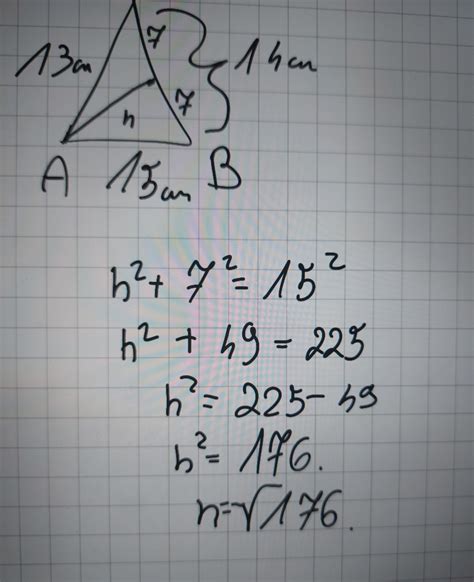 7
13cm 14cm
7
h
A 15cm B
h² + 7² = 15²
h² + 49 = 225
h² = 225 - 49
h² = 176.
h = √176.